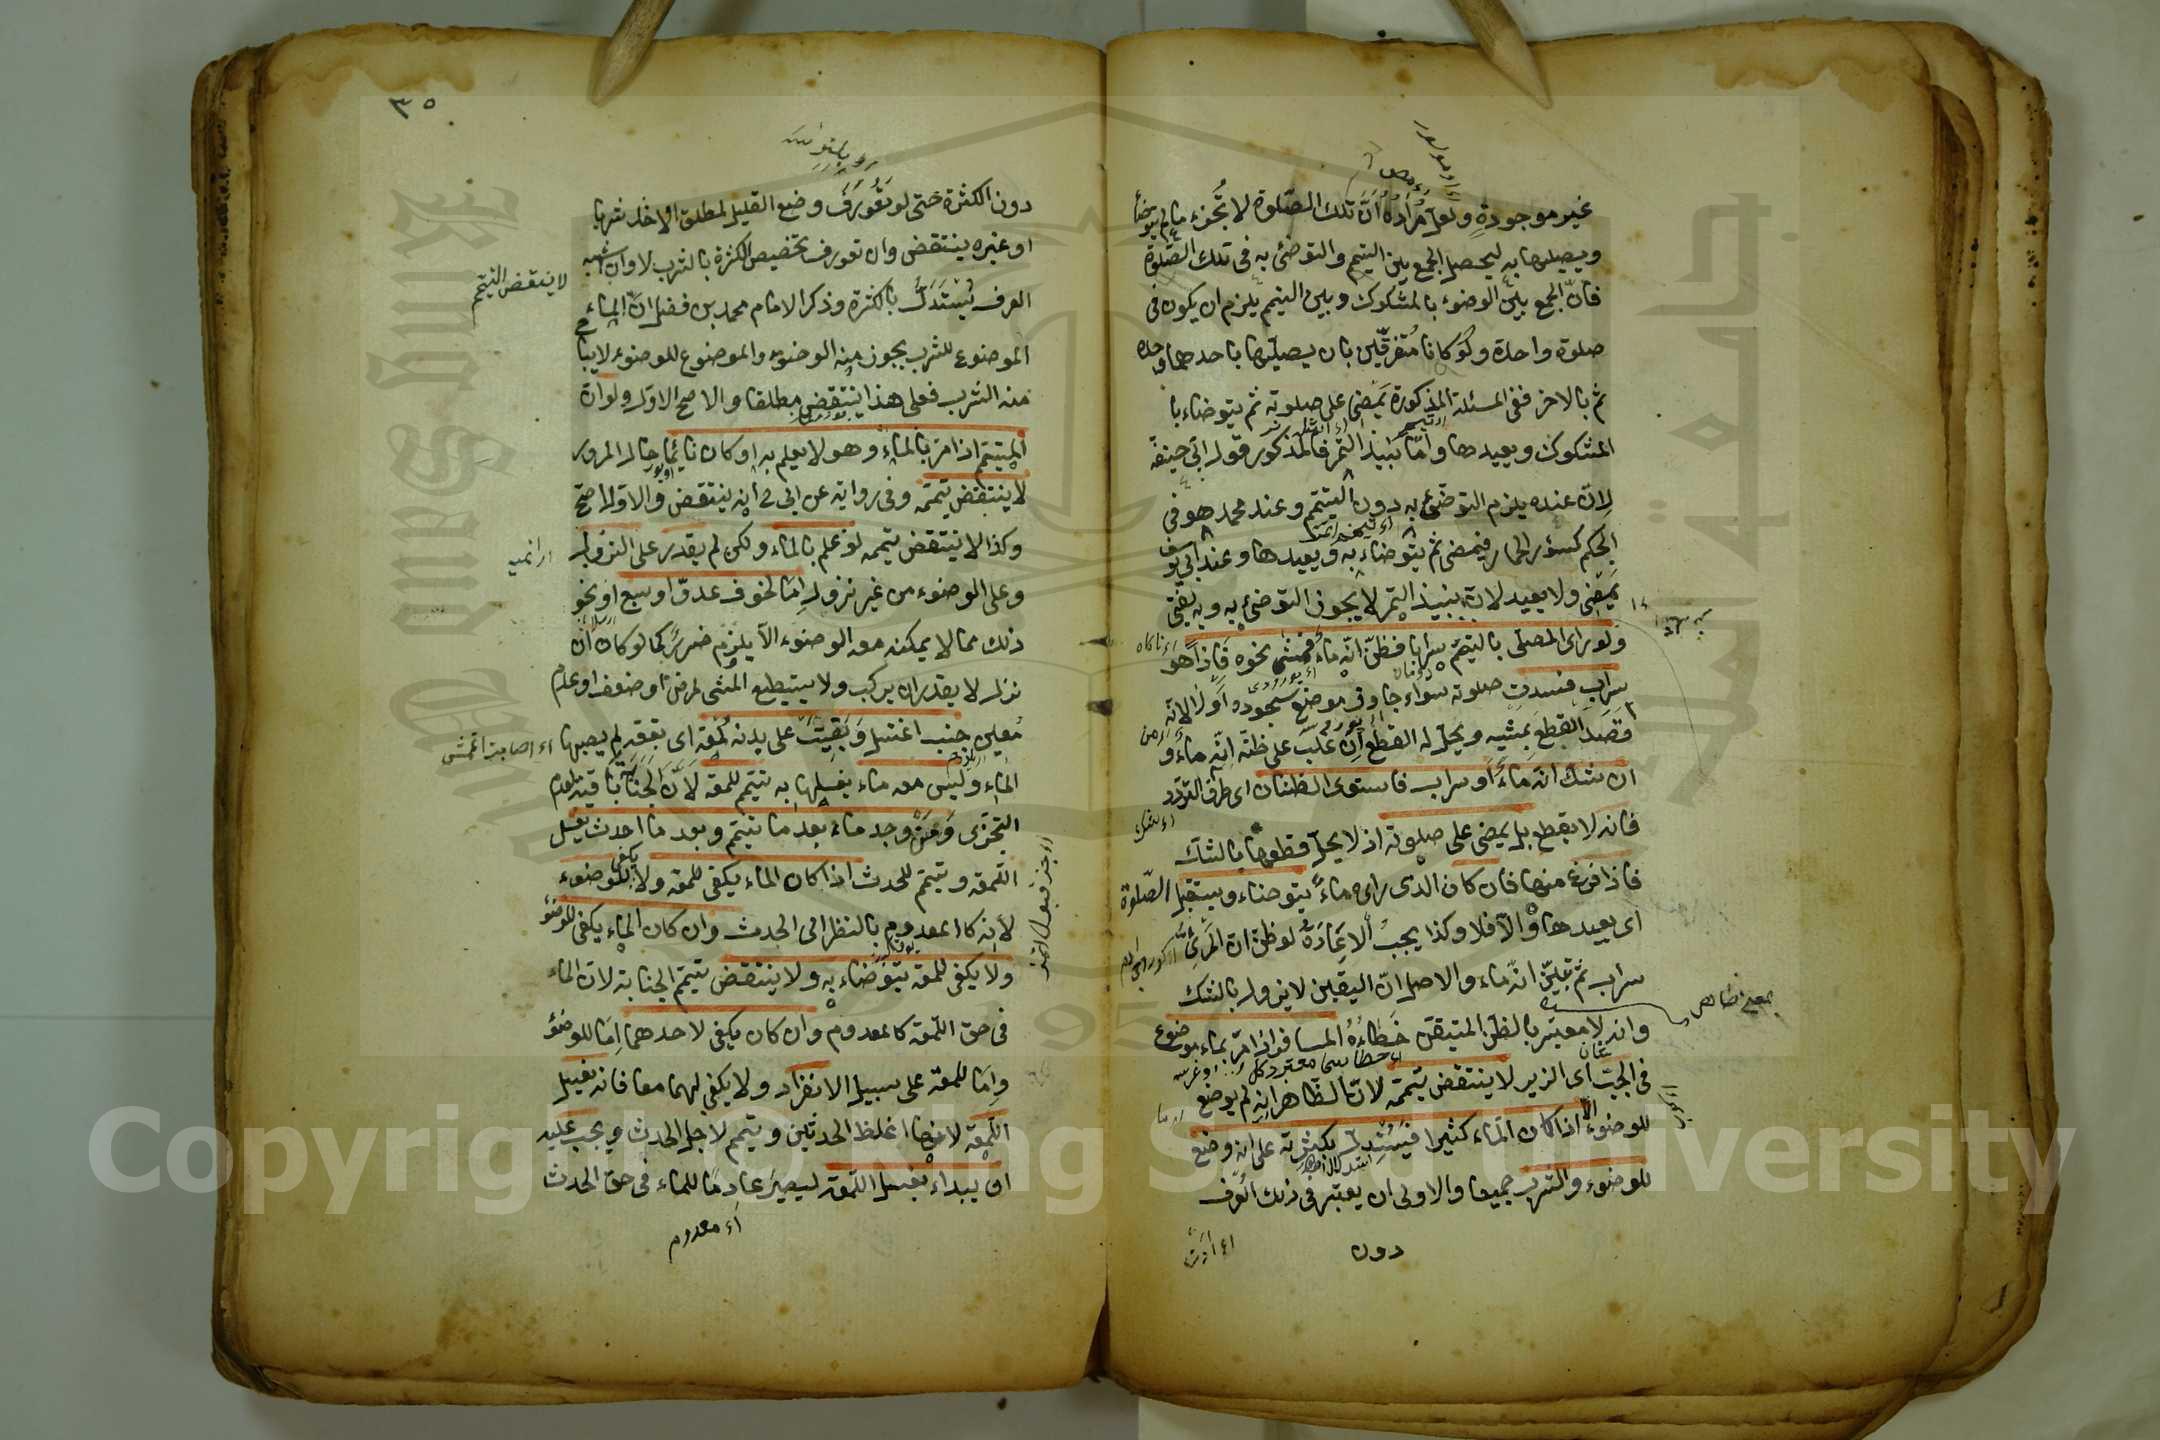 غير موجودة ولعل مراده ان تلك الصلوة لا تجزء ما لم يتوضأ
ويصليها به ليحصل الجمع بين التيمم والتوضئ به فى تلك الصلوة
فان الجمع بين الوضوء بالمشكوك وبين التيمم يلزم ان يكون فى
صلوة واحدة ولو كانا متفرقين بان يصليها باحدهما وحده
ثم بالاخر ففى المسئلة المذكورة يمضى على صلوته ثم يتوضاء با
المشكوك ويعيدها واما نبيذ التمر فالمذكور قول ابى حنيفة
لان عنده يلزم التوضئ به دون التيمم وعند محمد هو فى
الحكم كسؤر الحمار فيمضى ثم يتوضاء به ويعيدها وعند ابى يوسف
يمضى ولا يعيد لان نبيذ التمر لا يجوز التوضئ به وبه يفتى
ولو راى المصلى بالتيمم سرابا فظن انه ماء فمشى نحوه فاذا هو
سراب فسدت صلوته سواء جاوز موضع سجوده اولا لانه
قصد القطع بمشيه ويحل له القطع ان غلب على ظنه انه ماء و
ان شك انه ماء او سراب فاستوى الظنان اى طرفا التردد
فانه لا يقطع بل يمضى على صلوته اذ لا يحل قطعها بالشك
فاذا فرغ منها فان كان الذى راى ماء يتوضاء ويستقبل الصلوة
اى يعيدها والا فلا وكذا يجب الاعادة لو ظن ان المرئى
سراب ثم تبين انه ماء والاصل ان اليقين لا يزول بالشك
وانه لا معتبر بالظن المتيقن خطاءه المسافر اذا مر بماء موضوع
فى الجب اى الزير لا ينتقض تيممه لان الظاهر انه لم يوضع
للوضوء الا اذا كان الماء كثيرا فيستدل بكثرته على انه وضع
للوضوء والشرب جميعا والاولى ان يعتبر فى ذلك العرف
دون
٣٥
دون الكثرة حتى لو تعورف وضع القليل لمطلق الاخذ شربا
او غيره ينتقض وان تعورف تخصيص الكثرة بالشرب لا وان اشتبه
العرف يستدل بالكثرة وذكر الامام محمد بن فضل ان الماء
الموضوع للشرب يجوز منه الوضوء والموضوع للوضوء لا يباح
منه الشرب فعلى هذا ينتقض مطلقا والاصح الاول ولو ان
المتيمم اذا مر بالماء وهو لا يعلم به او كان نائما حال المرور
لا ينتقض تيممه وفى رواية عن ابى انه ينتقض والاول اصح
وكذا لا ينتقض تيممه لو علم بالماء ولكن لم يقدر على النزول
وعلى الوضوء من غير نزول اما لخوف عدو او سبع او نحو
ذلك مما لا يمكنه معه الوضوء الا يلزم ضرر كما لو كان ان
نزل لا يقدر ان يركب ولا يستطيع المشى لمرض او ضعف او عدم
معين جنب اغتسل وبقيت على بدنه لمعة اى بقعة لم يصبها
الماء وليس معه ماء يغسلها به تيمم للمعة لان الجنابة باقية لعدم
التجزى وجد ماء بعد ما تيمم وبعد ما احدث يغسل
اللمعة وتيمم للحدث اذا كان الماء يكفى للمعة ولا يكفى للوضوء
لانه كالمعدوم بالنظر الى الحدث وان كان الماء يكفى للوضوء
ولا يكفى للمعة يتوضاء به ولا ينتقض تيمم الجنابة لان الماء
فى حق اللمعة كالمعدوم وان كان يكفى لاحدهما اما للوضوء
واما للمعة على سبيل الانفراد ولا يكفى لهما معا فانه يغسل
اللمعة لانها اغلظ الحدثين وتيمم لاجل الحدث ويجب عليه
ان يبداء بغسل اللمعة ليصير عادما للماء فى حق الحدث
لا ينتقض التيمم
اى معدوم
Copyright © King Saud University